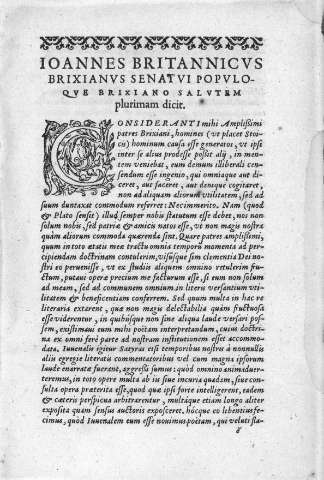 IOANNES BRITANNICVS
BRIXIANVS SENATVI POPVLO-
QVE BRIXIANO SALVTEM
plurimam dicit.
CONSIDERANTI mihi Amplissimi
patres Brixiani, homines (vt placet Stoi-
cis) hominum causa esse generatos, vt ipsi
inter se alius prodesse possit alij, in men-
tem veniebat, eum demum illiberali cen-
sendum esse ingenio, qui omniaque aut di-
ceret, aut faceret, aut denque cogitaret,
non ad aliquam aliorum vtilitatem, sed ad
suum duntaxat commodum referret: Nec immerito. Nam (quod
& Plato sensit) illud semper nobis statutum esse debet, nos non
solum nobis, sed patriæ & amicis natos esse, vt non magis nostra
quàm aliorum commoda quærenda sint. Quare patres amplissimi,
quum in toto ætatis meæ tractu omnia temporũ momenta ad per-
cipiendam doctrinam contulerim, visusque sim clementia Dei no-
stri eo peruenisse, vt ex studiis aliquem omnino retulerim fru-
ctum, putaui operæ precium me facturum esse, si eum non solum
ad meam, sed ad communem omnium in literis versantium vti-
litatem & beneficentiam conferrem. Sed quum multa in hac re
literaria extarent, quæ non magis delectabilia quàm fructuosa
esse viderentur, in quibúsque non sine aliqua laude versari pos-
sem, existimaui eum mihi poëtam interpretandum, cuius doctri-
na ex omni ferè parte ad nostram institutionem esset accommo-
data. Iuuenalis igitur Satyras etsi temporibus nostris à nonnullis
aliis egregiè literatis commentatoribus vel cum magna ipsorum
laude enarratæ fuerant, aggressi sumus: quòd omnino animaduer-
teremus, in toto opere multa ab iis siue incuria quadam, siue con-
sulta opera præterita esse, quod quæ ipsi forte intelligerent, eadem
& cæteris perspicua arbitrarentur, multáque etiam longo aliter
exposita quàm sensus auctoris exposceret. hócque eo libentius fe-
cimus, quòd Iuuenalem eum esse nouimus poëtam, qui veluti sta-